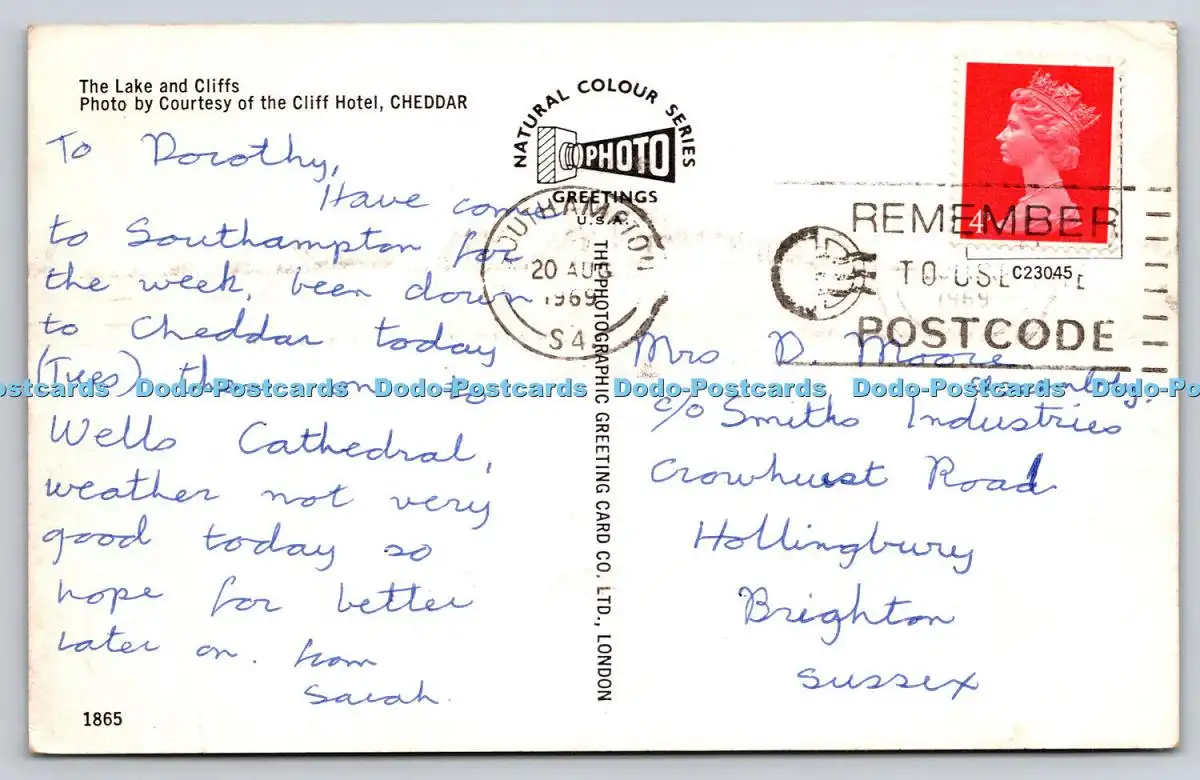 The Lake and Cliffs
Photo by Courtesy of the Cliff Hotel, CHEDDAR
NATURAL COLOUR SERIES
PHOTO
GREETINGS
U.S.A.
THE PHOTOGRAPHIC GREETING CARD CO. LTD., LONDON
To Dorothy,
Have come
to Southampton for
the week, been down
to Cheddar today
(Tues) then on to
Wells Cathedral,
weather not very
good today so
hope for better
later on. from
Sarah.
1865
SOUTHAMPTON
20 AUG
1969
S4
4
REMEMBER
TO USE
POSTCODE
C23045
Mrs D. Moore
Assembly.
c/o Smiths Industries
Crowhurst Road
Hollingbury
Brighton
Sussex
Dodo-Postcards Dodo-Postcards Dodo-Postcards Dodo-Postcards Dodo-Postcards